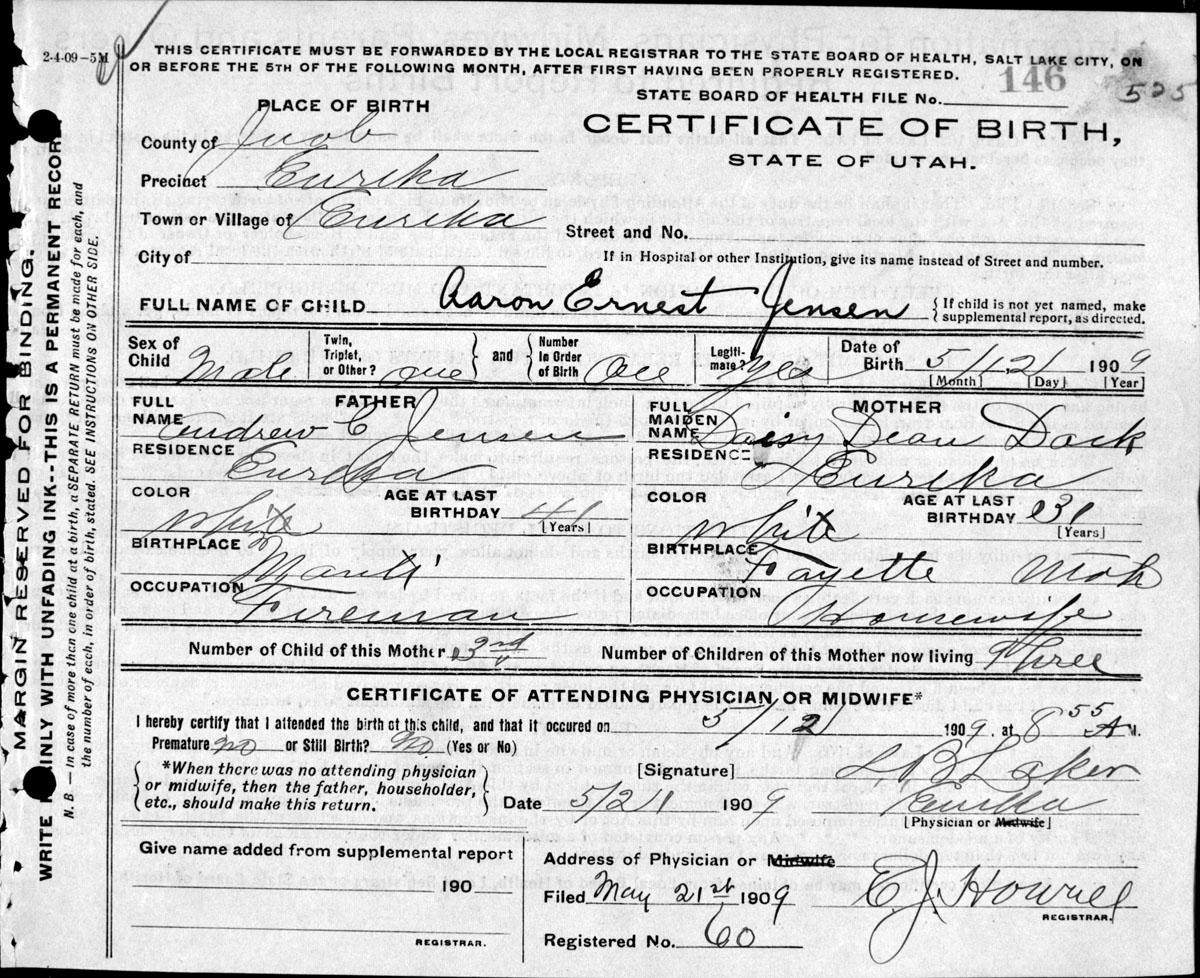 2-4-09-5M
THIS CERTIFICATE MUST BE FORWARDED BY THE LOCAL REGISTRAR TO THE STATE BOARD OF HEALTH, SALT LAKE CITY, ON
OR BEFORE THE 5TH OF THE FOLLOWING MONTH, AFTER FIRST HAVING BEEN PROPERLY REGISTERED.
STATE BOARD OF HEALTH FILE No. 146 525
PLACE OF BIRTH
CERTIFICATE OF BIRTH,
STATE OF UTAH.
County of Juab
Precinct Eureka
Town or Village of Eureka
Street and No.
City of
If in Hospital or other Institution, give its name instead of Street and number.
FULL NAME OF CHILD Aaron Ernest Jensen
{If child is not yet named, make
supplemental report, as directed.
Sex of Child Male
Twin, Triplet, or Other? one
and
Number in Order of Birth One
Legiti-mate? Yes
Date of Birth 5/12/ 1909
[Month] [Day] [Year]
FATHER
FULL NAME Andrew C Jensen
RESIDENCE Eureka
COLOR White
AGE AT LAST BIRTHDAY 41 [Years]
BIRTHPLACE Manti
OCCUPATION Fireman
MOTHER
FULL MAIDEN NAME Daisy Dean Dack
RESIDENCE Eureka
COLOR White
AGE AT LAST BIRTHDAY 31 [Years]
BIRTHPLACE Fayette
OCCUPATION Housewife
Number of Child of this Mother 3rd
Number of Children of this Mother now living Three
CERTIFICATE OF ATTENDING PHYSICIAN OR MIDWIFE*
I hereby certify that I attended the birth of this child, and that it occured on 5/12/ 1909, at 8 55 A M.
Premature no or Still Birth? No (Yes or No)
{*When there was no attending physician
or midwife, then the father, householder,
etc., should make this return.}
[Signature] L B Laker
Date 5/21 1909 Eureka
[Physician or Midwife]
Give name added from supplemental report
190
REGISTRAR.
Address of Physician or Midwife
Filed May 21st 1909 E J Howell
REGISTRAR.
Registered No. 60
MARGIN RESERVED FOR BINDING.
WRITE PLAINLY WITH UNFADING INK--THIS IS A PERMANENT RECORD.
N. B.—In case of more than one child at a birth, a SEPARATE RETURN must be made for each, and
the number of each, in order of birth, stated. SEE INSTRUCTIONS ON OTHER SIDE.